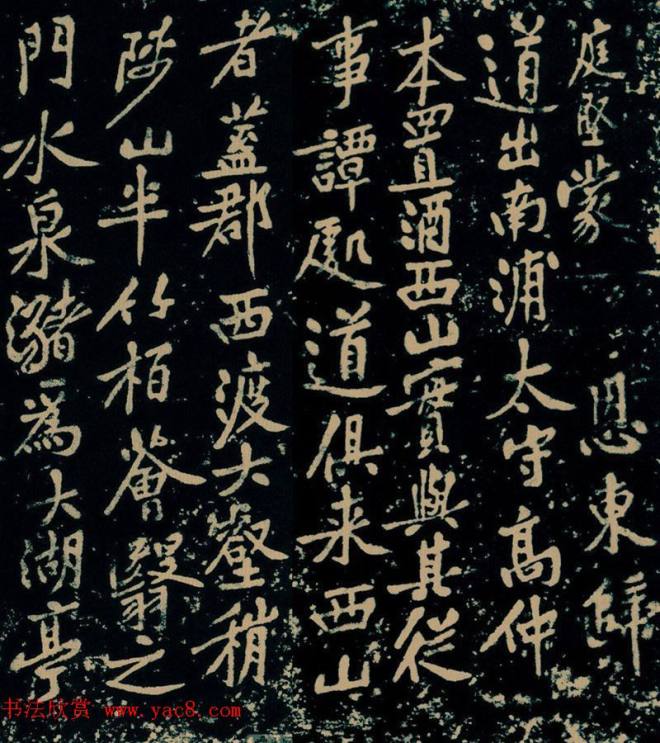 庭堅蒙 恩東歸
道出南浦太守高仲
本置酒西山實與其從
事譚處道俱來西山
者蓋郡西渡大壑稍
陟山半竹柏薈翳之
門水泉瀦為大湖亭
书法欣赏 www.yac8.com